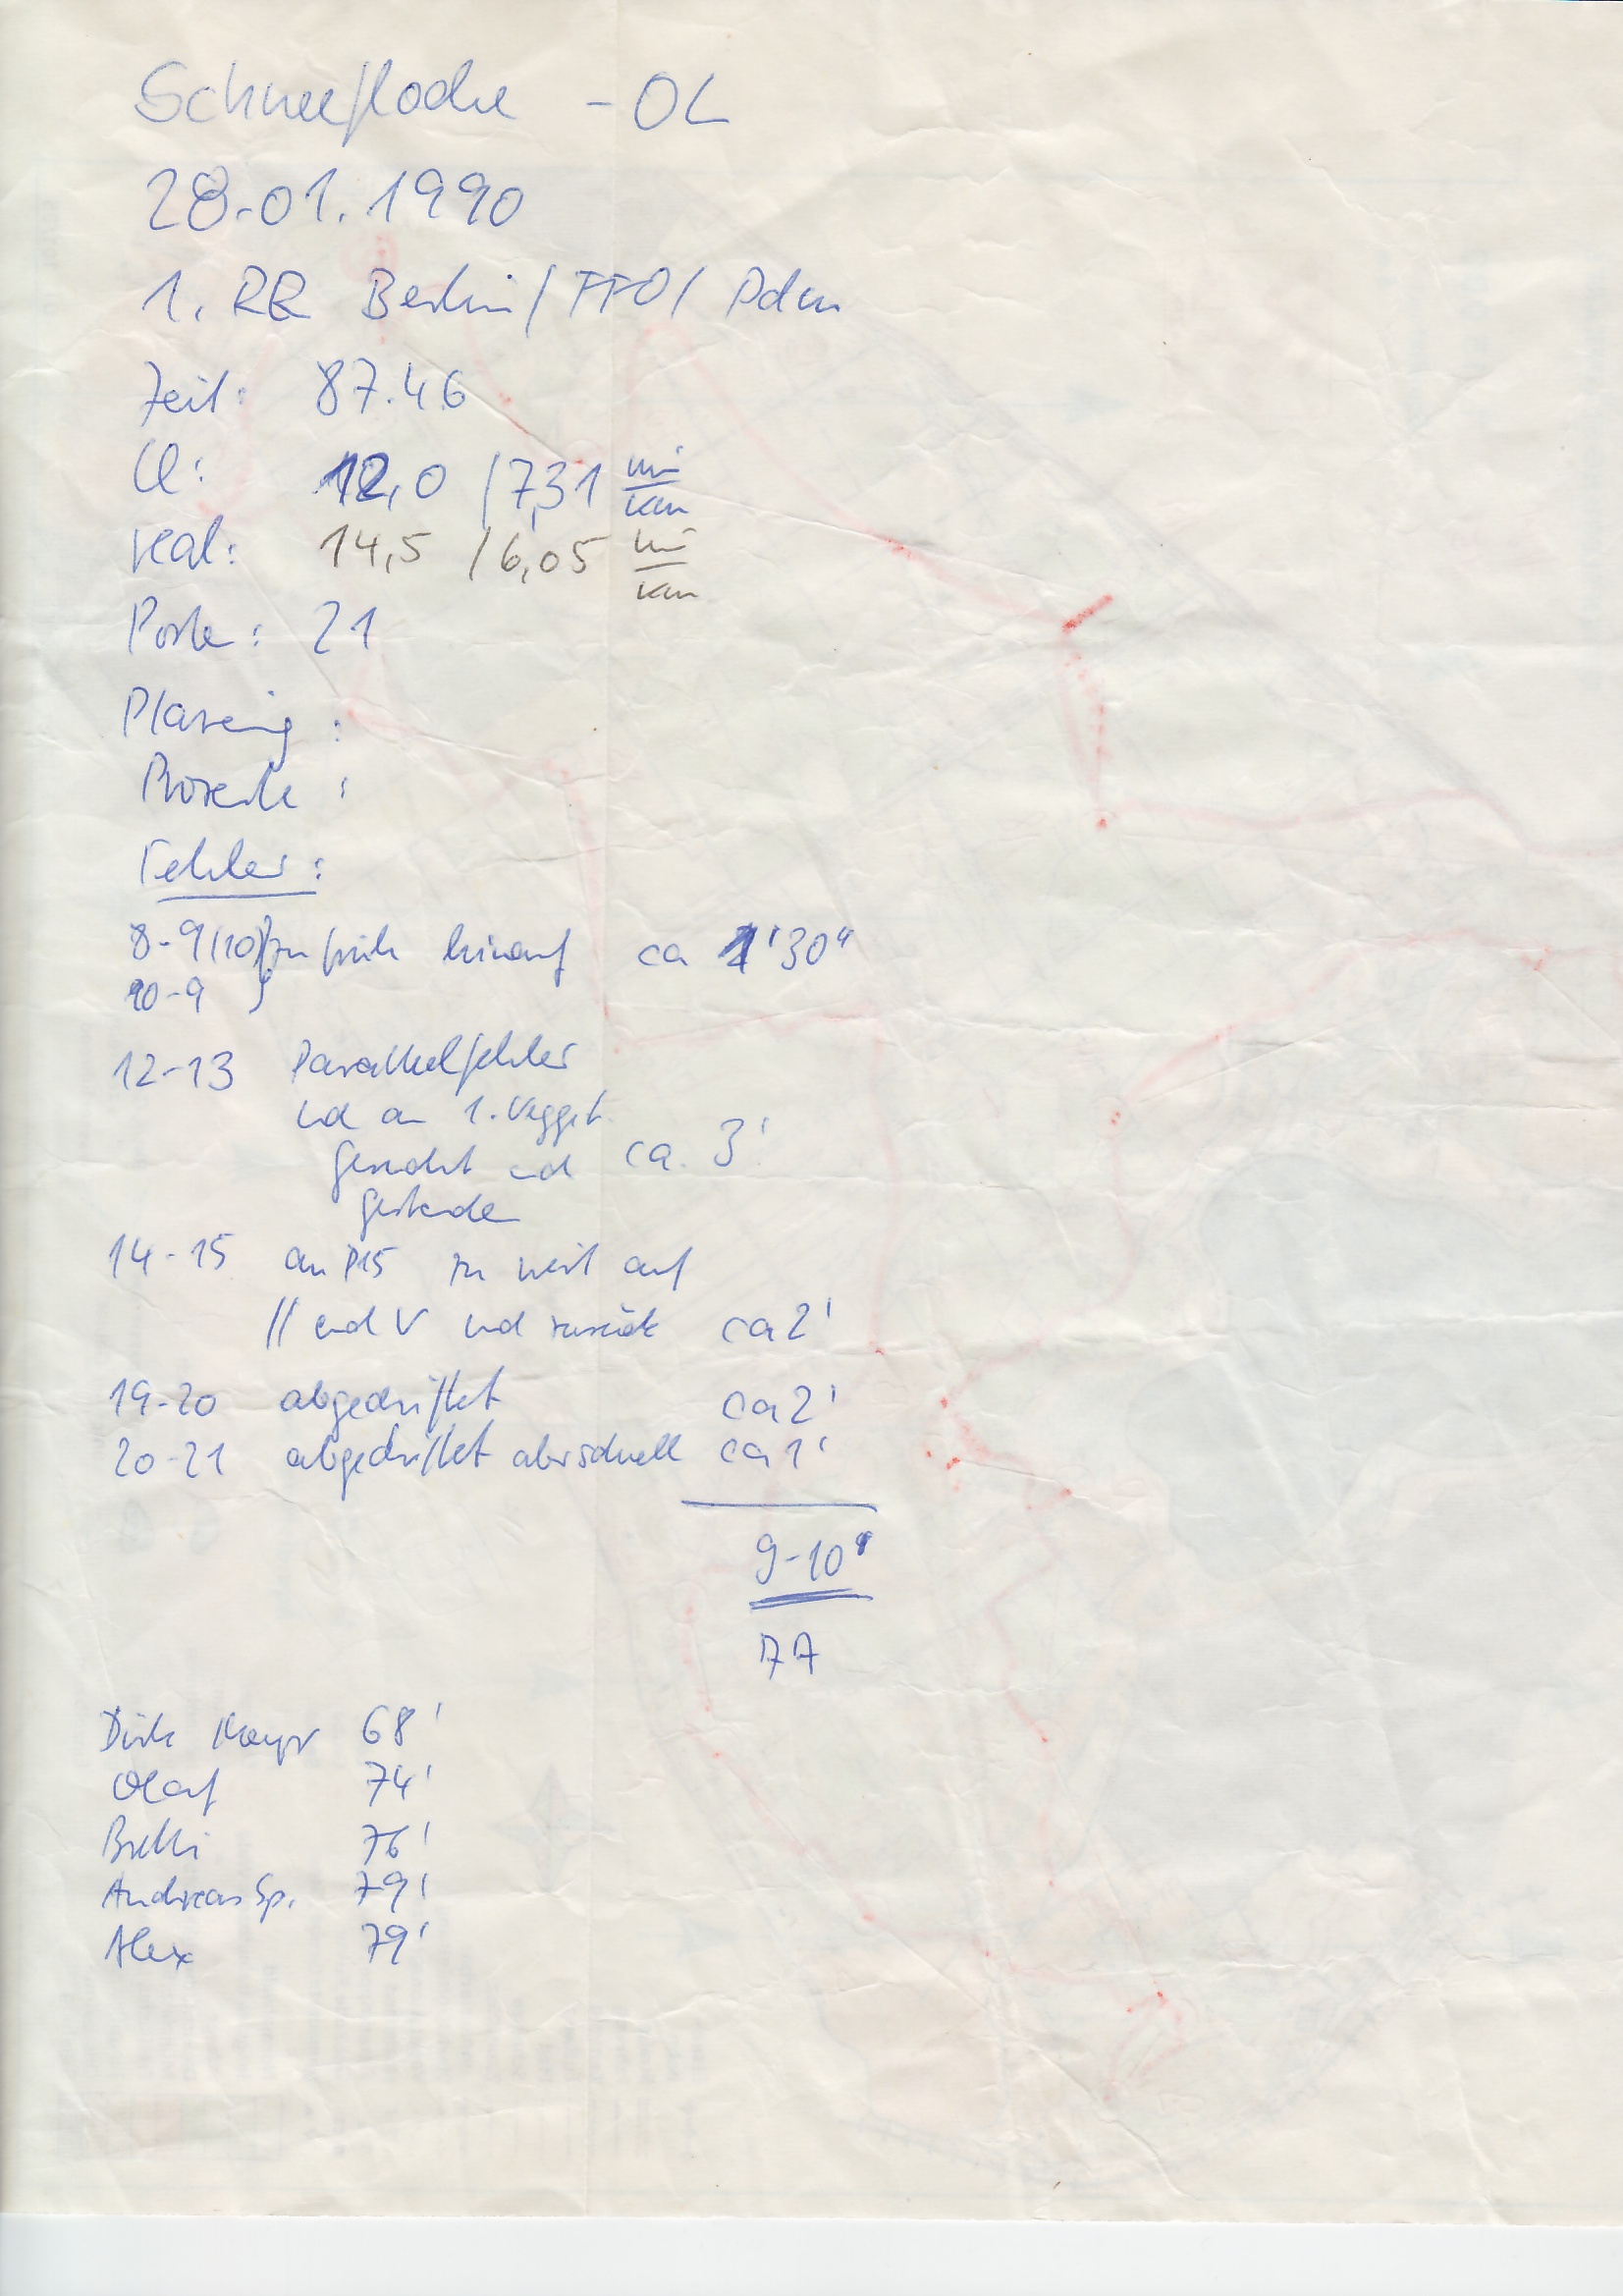 Schneeflocke - OL
28.01.1990
1. RR Berlin/FFO/ Pdm
Zeit: 87.46
12,0 / 7,31 min/km
real: 14,5 / 6,05 min/km
Posten: 21
Plazierung :
Prozente :
Fehler:
8-9(10) zu früh hinauf ca 1'30"
10-9
12-13 Parallelfehler
und an 1. Vegget.
gesucht und ca. 3'
gestanden
14-15 an P15 zu weit auf
// und V und zurück ca 2'
19-20 abgedriftet ca 2'
20-21 abgedriftet aber schnell ca 1'
9-10'
77
Dirk Meyer 68'
Olaf 74'
Brelli 76'
Andreas Sp. 79'
Alex 79'